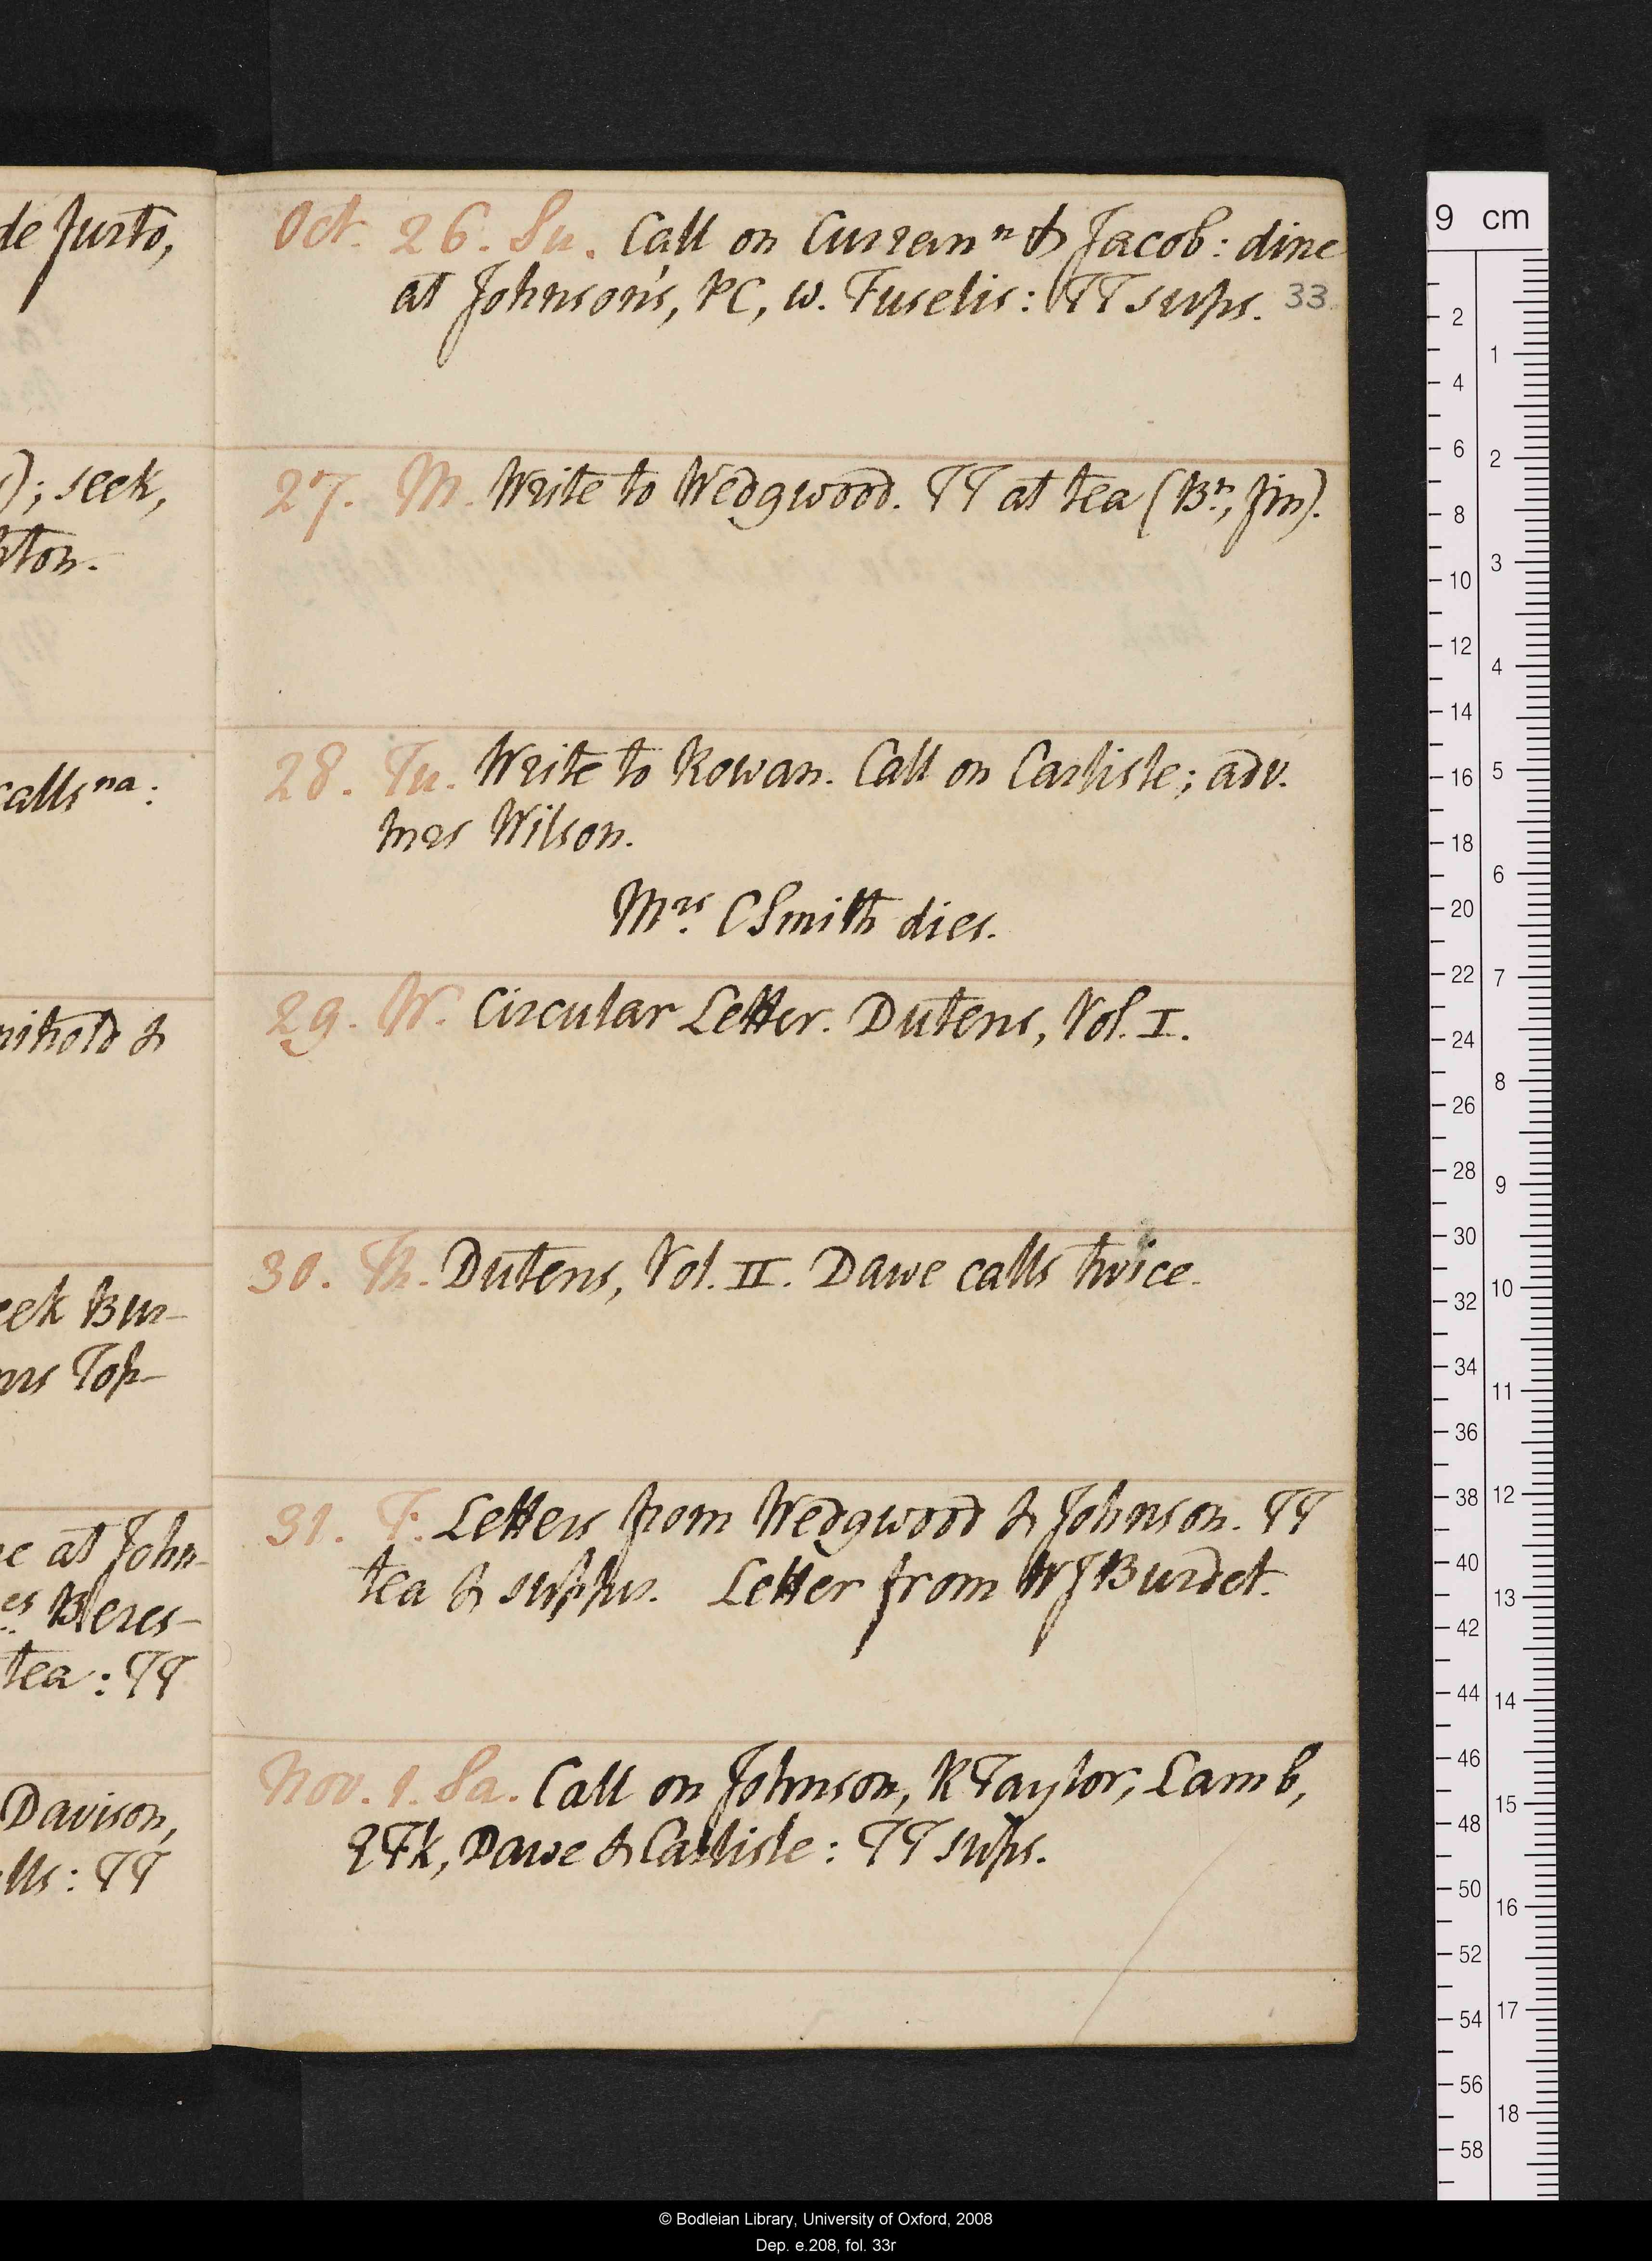 de Justo,
); seek,
hton.
calls na:
nihold &
eek Bur-
mrs Top-
e at John-
es Beres-
tea: TT
Davison,
lls: TT
Oct. 26. Su. Call on Curran n & Jacob: dine
at Johnson's, PC, w. Fuselis: TT sups. 33
27. M. Write to Wedgwood. TT at tea (Bn, fin).
28. Tu. Write to Rowan. Call on Carlisle; adv.
mrs Wilson.
Mrs. C Smith dies.
29. W. Circular Letter. Dutens, Vol. I.
30. Th. Dutens, Vol. II. Dawe calls twice.
31. F. Letters from Wedgwood & Johnson. TT
tea & suppers. Letter from W J Burdet.
Nov. 1. Sa. Call on Johnson, R Taylor, Lamb,
q Fk, Dawe & Carlisle: TT sups.
9 cm
2 4 6 8 10 12 14 16 18 20 22 24 26 28 30 32 34 36 38 40 42 44 46 48 50 52 54 56 58
1 2 3 4 5 6 7 8 9 10 11 12 13 14 15 16 17 18
© Bodleian Library, University of Oxford, 2008
Dep. e.208, fol. 33r